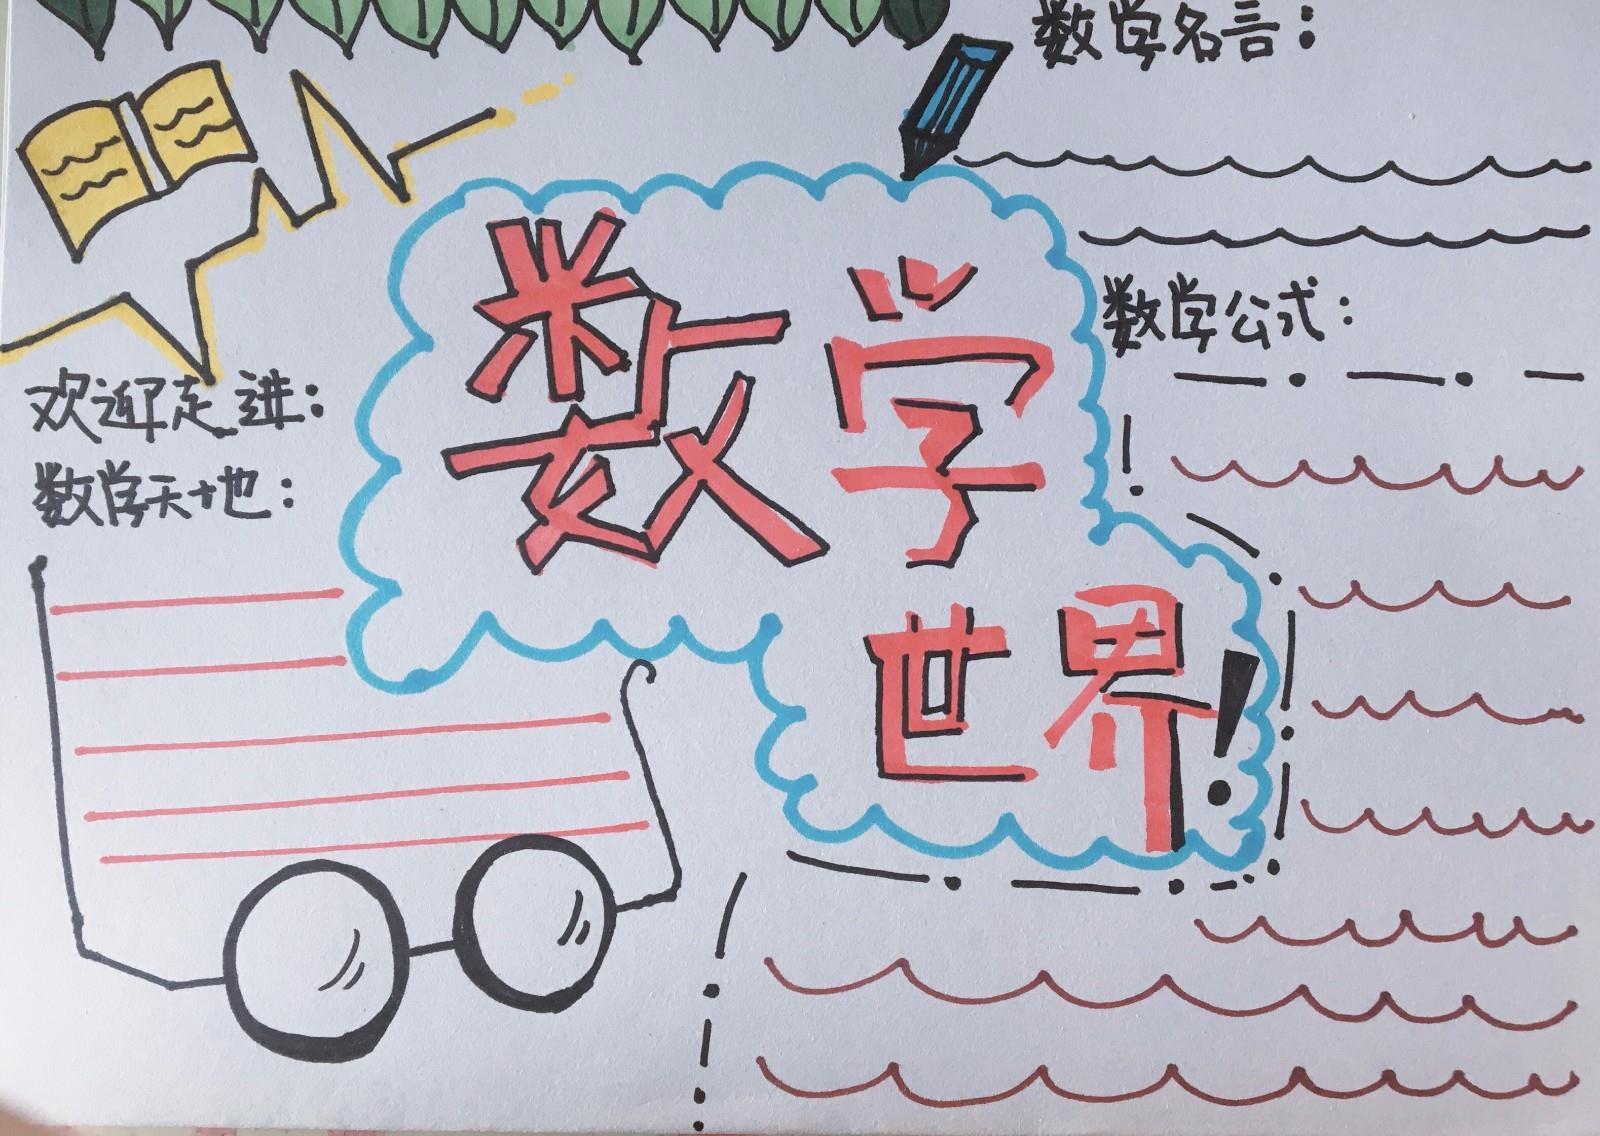 数学名言：
数学
世界！
数学公式：
欢迎走进：
数学天地：